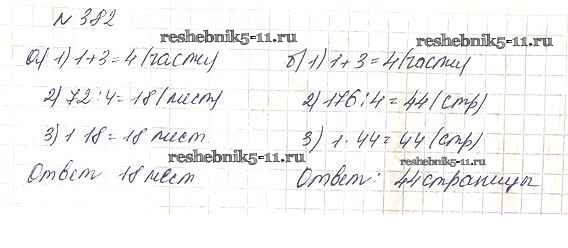 № 382
reshebnik5-11.ru
reshebnik5-11.ru
а) 1) 1+3=4 (части)
2) 72:4=18 (мест)
3) 1 18=18 мест
reshebnik5-11.ru
Ответ 18 мест
б) 1) 1+3=4 (части)
2) 176:4=44 (стр)
3) 1·44=44 (стр)
reshebnik5-11.ru
Ответ: 44 страницы